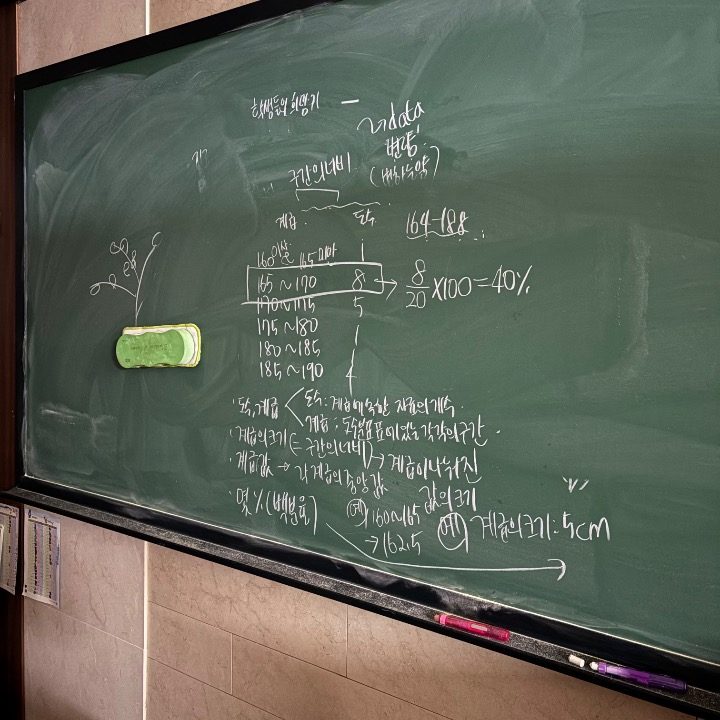 학생들의
data
변량
구간의 너비
계급 도수 164-188
160이상~165미만 1
165~170 8 → 8/20 X100=40%
170~175 5
175~180 1
180~185 1
185~190 4
· 도수, 계급 < 도수 : 계급에 속한 자료의 개수.
계급 : 도수분포표에 있는 각각의 구간.
· 계급의 크기 (= 구간의 너비) → 계급이 나눠진 값의 크기
· 계급값 → 각 계급의 중앙값
예 160~165
→ 162.5
예 계급의 크기 : 5cm
· 몇 % (백분율)